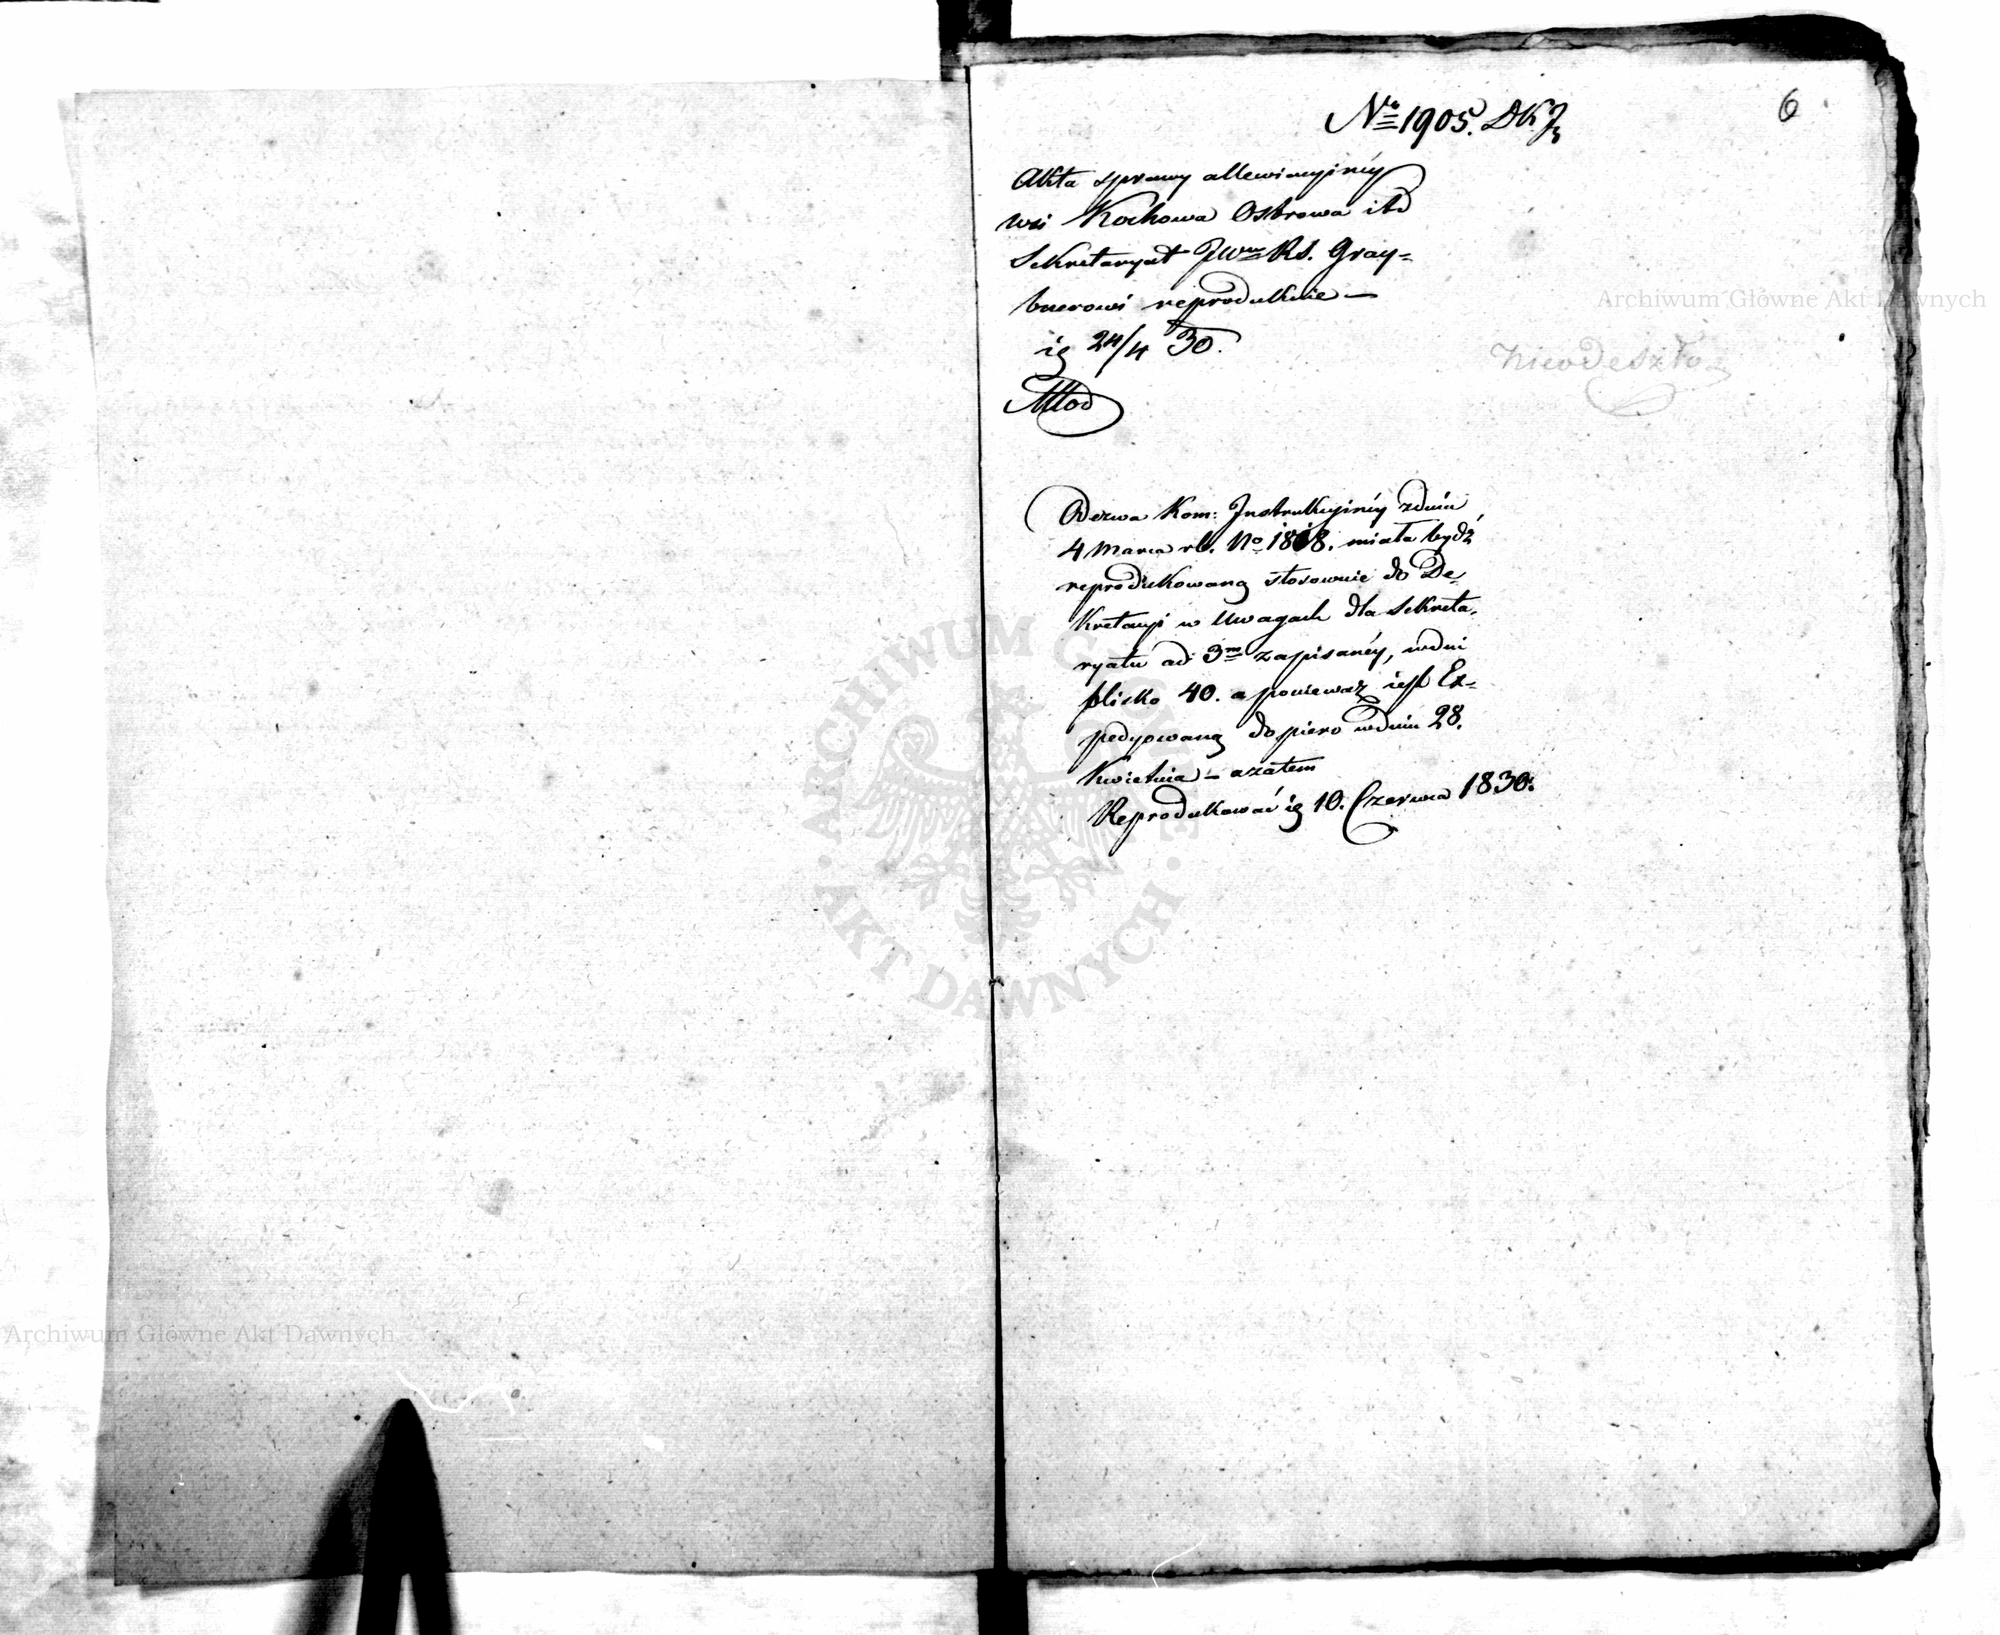 6
No 1905. DKJ
Akta sprawy allewiacyjnéy
wsi Kochowa Ostrowa itd
Sekretaryat JWmu Rs. Gray-
bnerowi reprodukuie —
ig 24/4 30.
Młod
Nieodeszło
Odezwa Kom: Instrukcyinéy zdnia
4 Marca rb. No 1818. miała bydź
reprodukowaną stosownie do De-
kretacyi w Uwagach dla Sekreta-
ryatu ad 3m zapisanéy, wdni
40. a ponieważ iest Ex-
pedyowaną dopiero wdniu 28.
Kwietnia – azatem
Reprodukować ią 10. Czerwca 1830.
Archiwum Główne Akt Dawnych
Archiwum Główne Akt Dawnych
ARCHIWUM GŁÓWNE AKT DAWNYCH